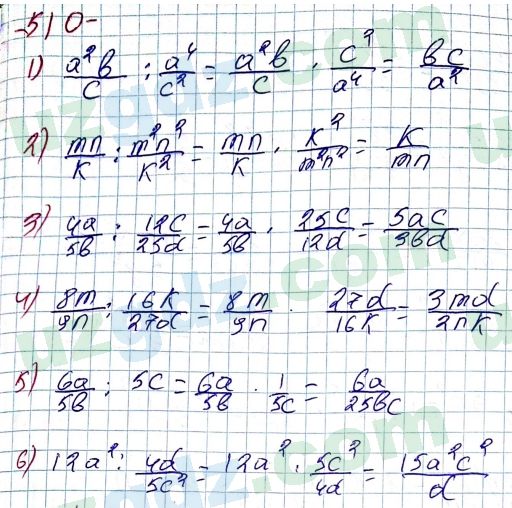 510-
1) a²b/c : a⁴/c² = a²b/c · c²/a⁴ = bc/a²
2) mn/k : m²n²/k² = mn/k · k²/m²n² = k/mn
3) 4a/5b : 12c/25d = 4a/5b · 25c/12d = 5ac/3bd
4) 8m/9n : 16k/27d = 8m/9n · 27d/16k = 3md/2nk
5) 6a/5b : 5c = 6a/5b · 1/5c = 6a/25bc
6) 12a² : 4d/5c² = 12a² · 5c²/4d = 15a²c²/d
uzgdz.com